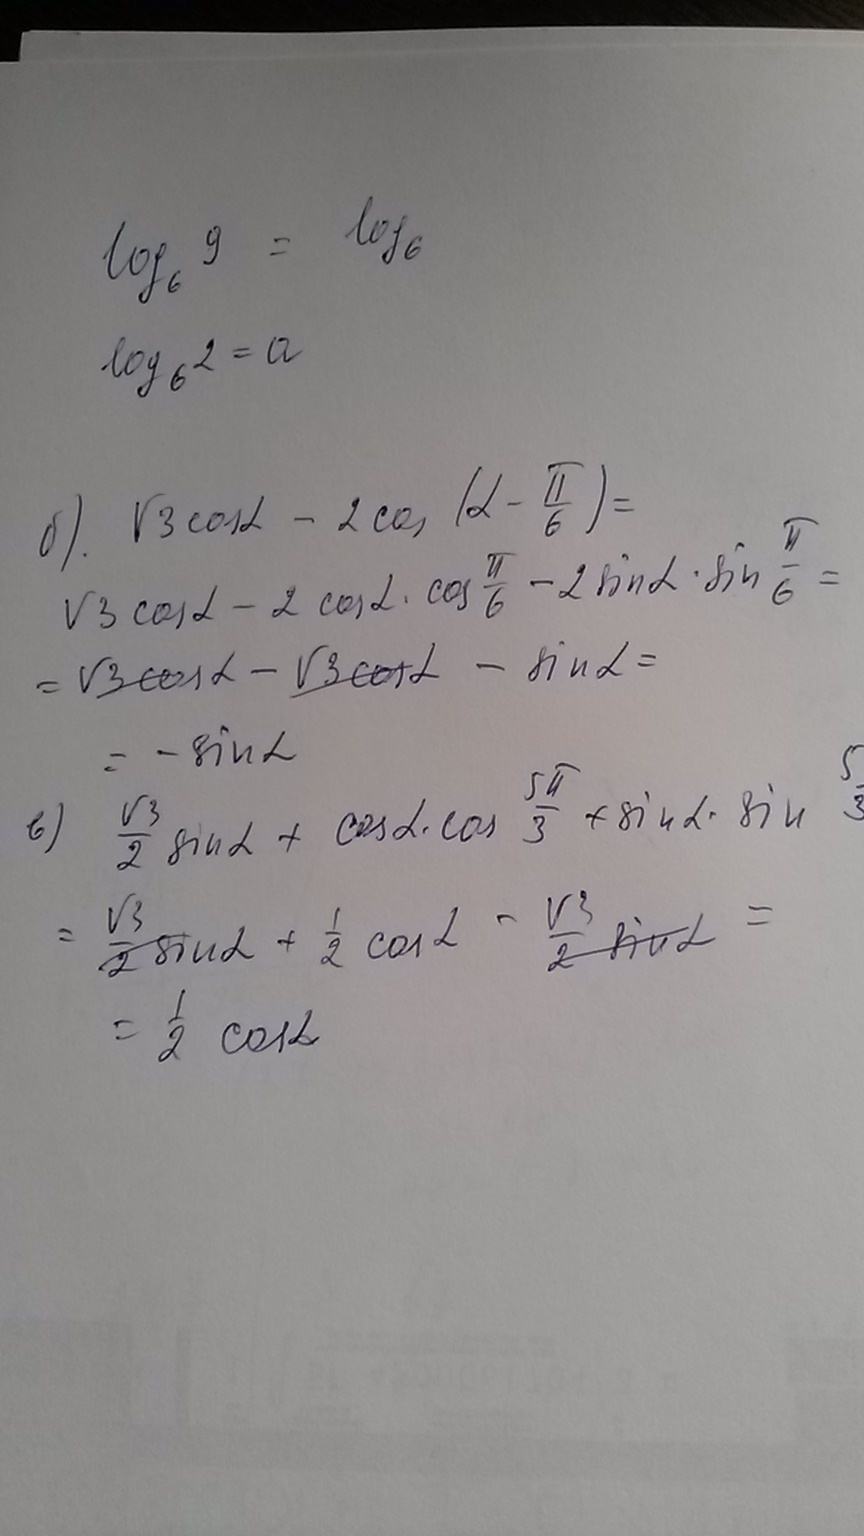 log₆ 9 = log₆
log₆ 2 = a
б). √3 cosα - 2 cos (α - π/6) =
√3 cosα - 2 cosα · cos π/6 - 2 sinα · sin π/6 =
= √3 cosα - √3 cosα - sinα =
= - sinα
в) √3/2 sinα + cosα · cos 5π/3 + sinα · sin 5/3
= √3/2 sinα + 1/2 cosα - √3/2 sinα =
= 1/2 cosα